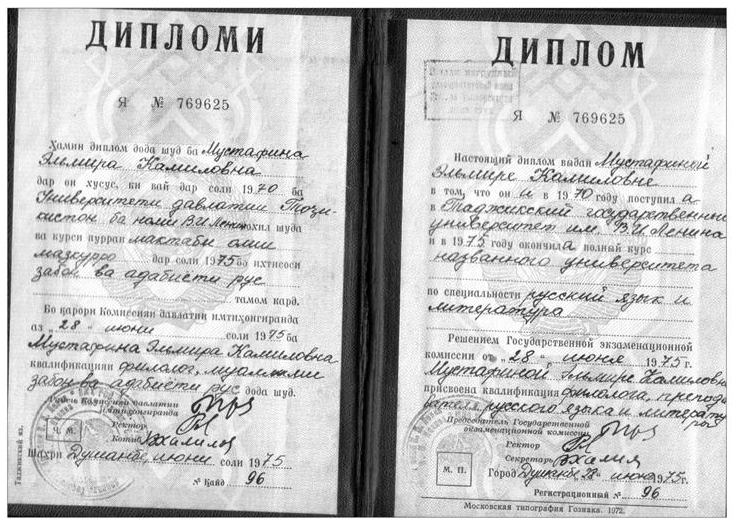 ДИПЛОМИ
Я № 769625
Ҳамин диплом дода шуд ба Мустафина
Эльмира Камиловна
дар он хусус, ки вай дар соли 1970 ба
Университети давлатии Тоҷи-
кистон ба номи В.И. Ленин дохил шуда
ва курси пурраи мактаби олии
мазкурро дар соли 1975 ба ихтисоси
забон ва адабиёти рус
тамом кард.
Бо қарори Комиссияи давлатии имтиҳонгиранда
аз „28“ июни соли 1975 ба
Мустафина Эльмира Камиловна
квалификацияи филолог, муаллими
забон ва адабиёти рус дода шуд.
имтиҳонгиранда
Ректор
Котиб
М. М.
Шаҳри Душанбе, июни соли 1975
№ Қайд 96
Таджикский яз.
ДИПЛОМ
Я № 769625
Настоящий диплом выдан Мустафиной
Эльмире Камиловне
в том, что он и в 1970 году поступил а
в Таджикский государственный
университет им. В.И. Ленина
и в 1975 году окончила полный курс
названного университета
по специальности русский язык и
литература
Решением Государственной экзаменационной
комиссии от „28“ июня 1975 г.
Мустафиной Эльмире Камиловне
присвоена квалификация филолога, препода-
вателя русского языка и литерату-
ры
Председатель Государственной
экзаменационной комиссии
Ректор
Секретарь
М. П.
Город Душанбе „28“ июня 1975 г.
Регистрационный № 96
Московская типография Гознака. 1972.